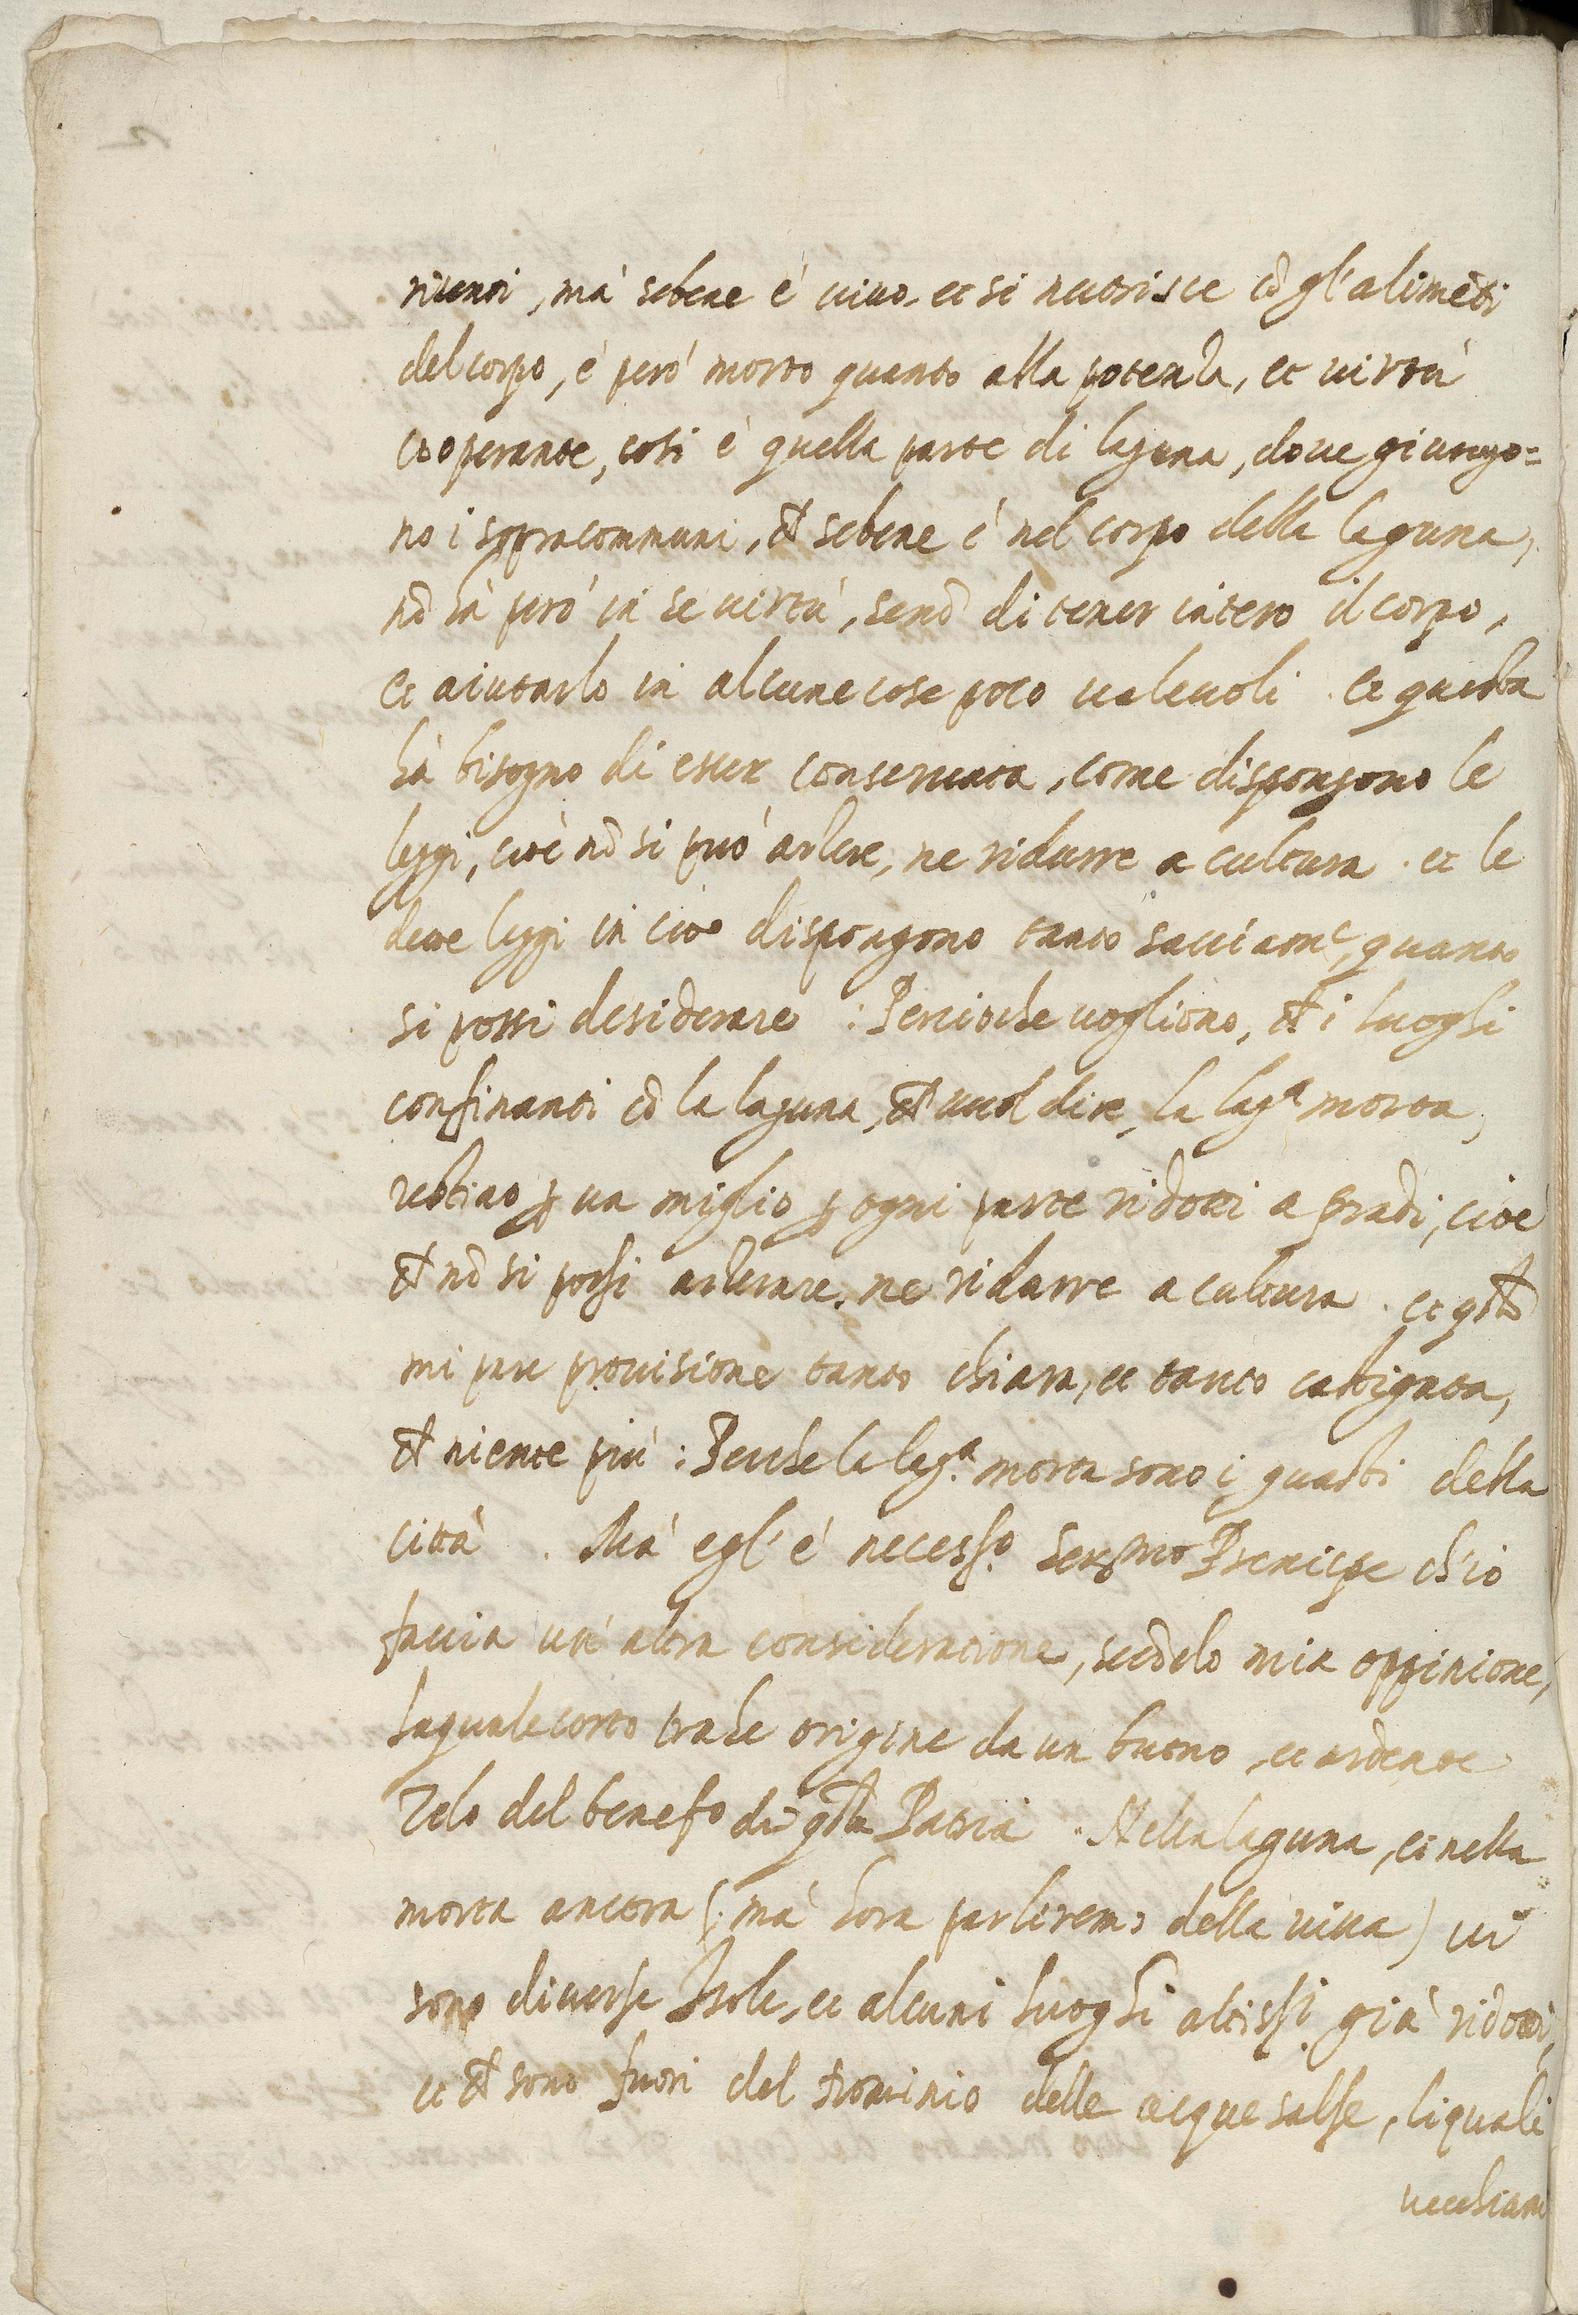 riuenti, mà sebene è uiuo, et si nutrisce cō gl'alimēti
del corpo, è però morto quanto alla potenza, et uirtù
cooperante, cosi è quella parte di laguna, doue giungo=
no i sopracommuni, et sebene è nel corpo della laguna,
nō hà però in se uirtù, senō di tener intero il corpo,
et aiutarlo in alcune cose poco ualeuoli. et questa
hà bisogno di esser conseruata, come dispongono le
leggi, cioè nō si può arlere, ne ridurre a cultura. et le
dette leggi in ciò dispongono tanto sauiamᵉ, quanto
si possi desiderare: Percioche uogliono, ch' i luoghi
confinanti cō la laguna, ch' uuol dire, la lagᵃ morta,
restino ꝑ un miglio ꝑ ogni parte ridotti a pradi, cioè
ch' nō si possi arlerare, ne ridurre a cultura. et qsto
mi pare prouisione tanto chiara, et tanto castigata,
ch' niente più: Perche la lagᵃ morta sono i guasti della
città. Mà egl'è necessº Serᵐᵒ Prencipe ch'io
faccia un'altra consideratione, secōdo mia oppinione,
laquale certo trahe origine da un buono, et ardente
zelo del benefº di qsta Patria. Nella laguna, et nella
morta ancora (mà hora parleremo della uiua) ui
sono diuerse Isole, et alcuni luoghi altissⁱ già ridotti,
et ch' sono fuori del dominio delle acque salse, li quali